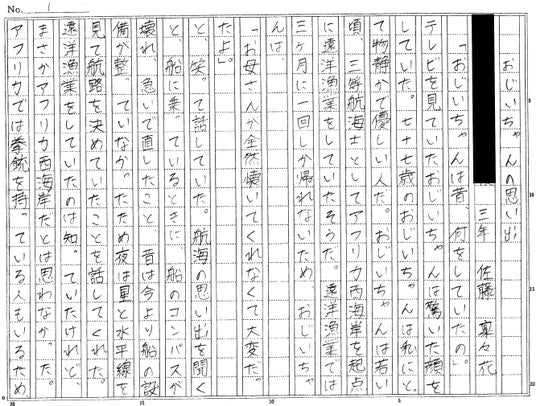 No. 1
おじいちゃんの思い出
三年 佐藤 菜々花
「おじいちゃんは昔、何をしていたの。」
テレビを見ていたおじいちゃんは驚いた顔を
していた。七十七歳のおじいちゃんは私にと
って物静かで優しい人だ。おじいちゃんは若い
頃、三等航海士としてアフリカ西海岸を起点
に遠洋漁業をしていたそうだ。遠洋漁業では
三ヶ月に一回しか帰れないため、おじいちゃ
んは、
「お母さんが全然懐いてくれなくて大変だっ
たよ。」
と、笑って話していた。航海の思い出を聞く
と、船に乗っているときに、船のコンパスが
壊れ、急いで直したこと、昔は今より船の設
備が整っていなかったため夜は星と水平線を
見て航路を決めていたことを話してくれた。
遠洋漁業をしていたのは知っていたけれど、
まさかアフリカ西海岸だとは思わなかった。
アフリカでは拳銃を持っている人もいるため
5
10
15
20
20
15
10
5